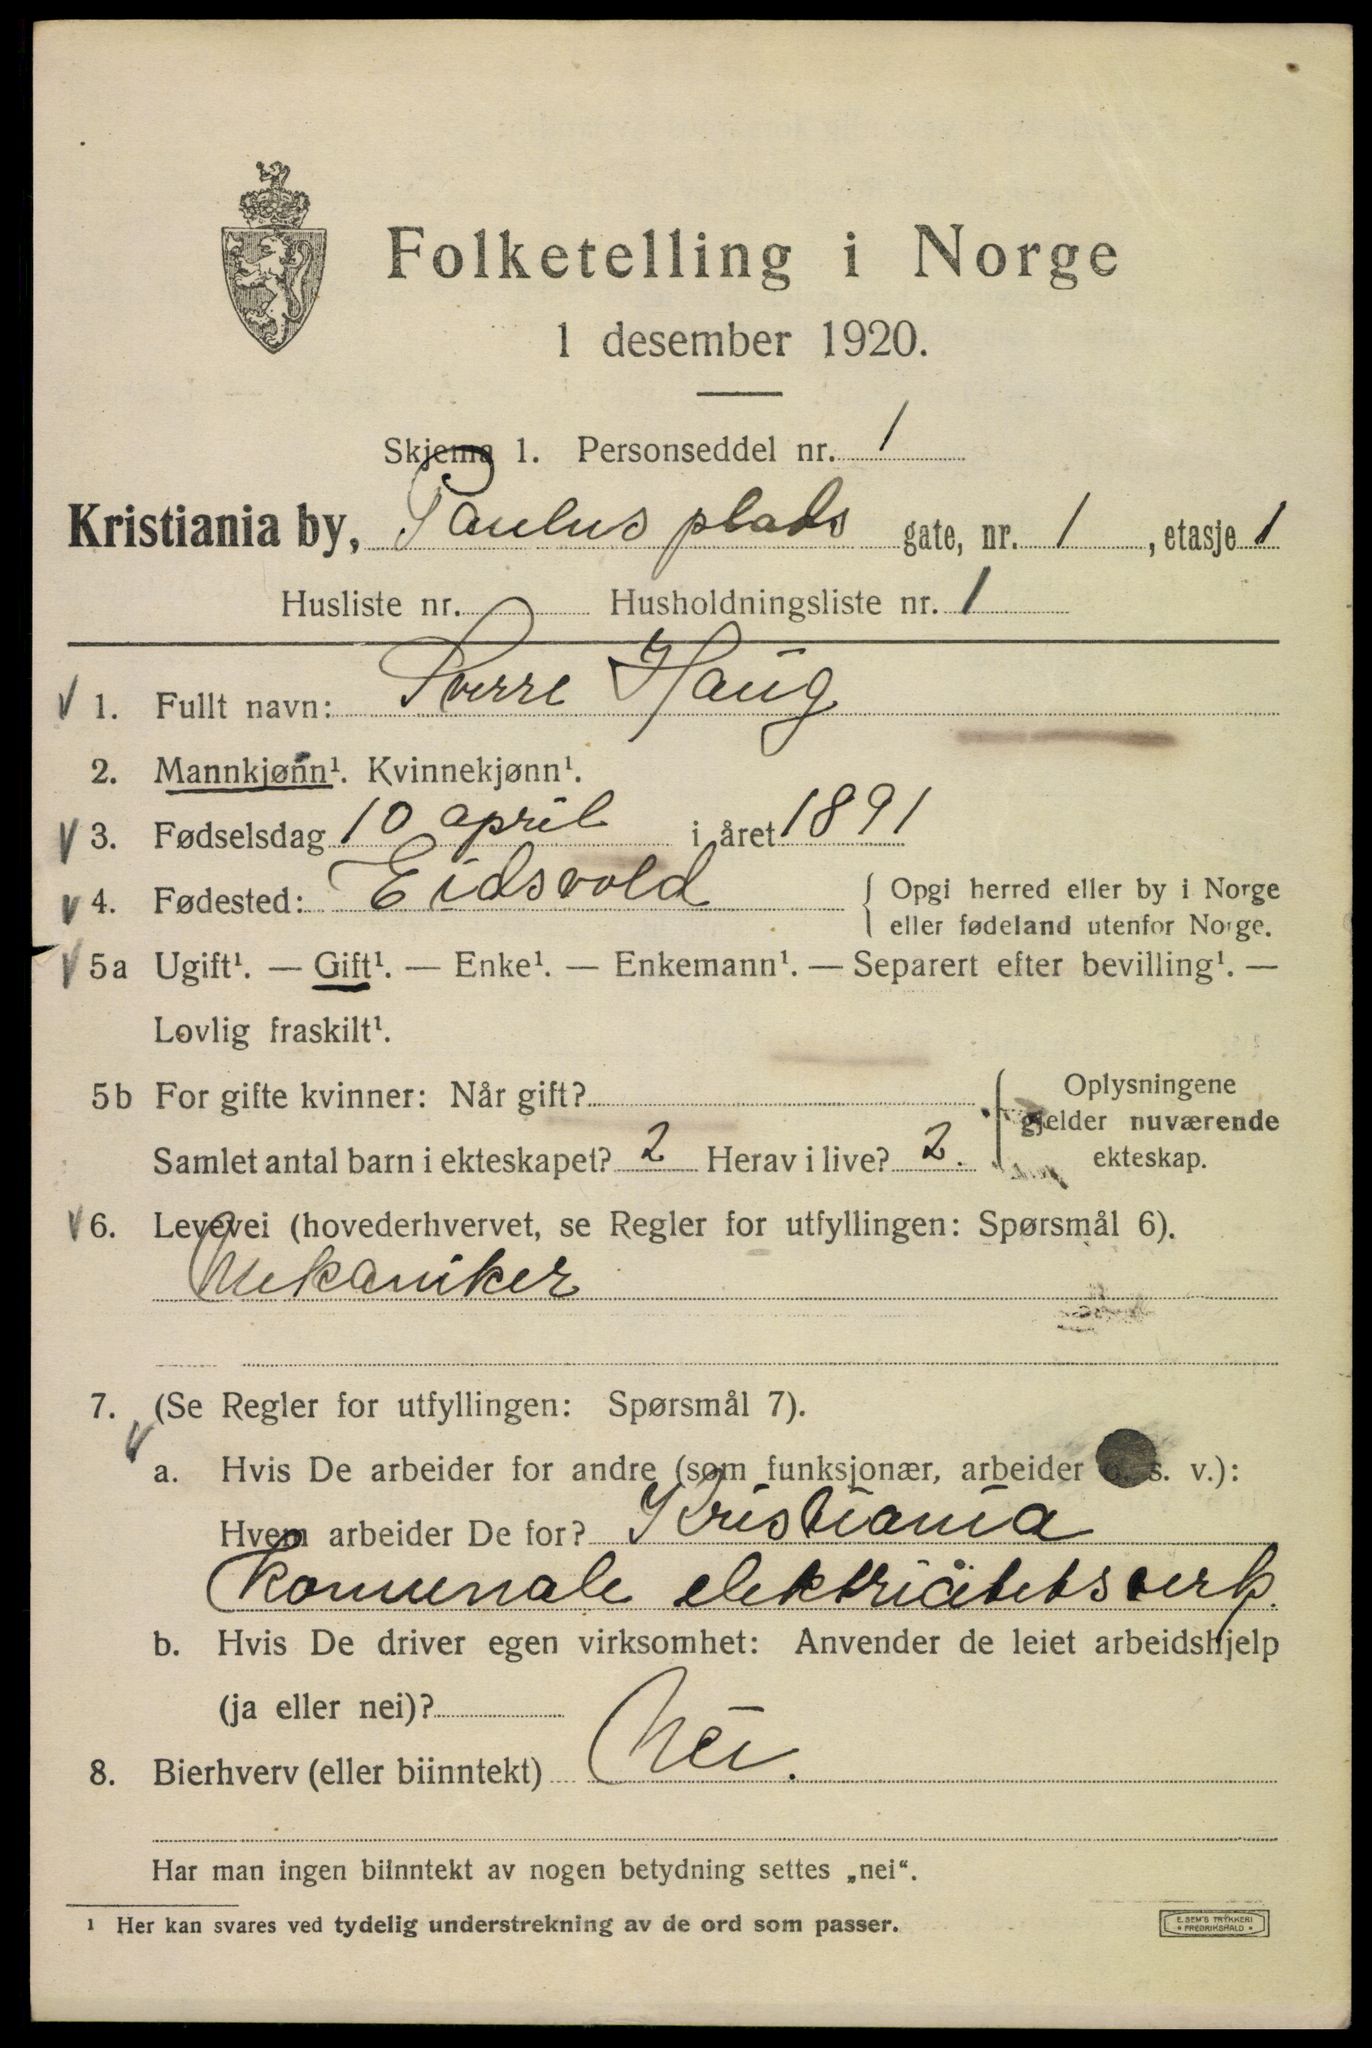 Folketelling i Norge
1 desember 1920.
Skjema 1. Personseddel nr. 1
Kristiania by, Paulus plads gate, nr. 1, etasje 1
Husliste nr. Husholdningsliste nr. 1
1. Fullt navn: Sverre Haug
2. Mannkjønn¹. Kvinnekjønn¹.
3. Fødselsdag 10 april i året 1891
4. Fødested: Eidsvold { Opgi herred eller by i Norge
eller fødeland utenfor Norge.
5a Ugift¹. — Gift¹. — Enke¹. — Enkemann¹. — Separert efter bevilling¹. —
Lovlig fraskilt¹.
5b For gifte kvinner: Når gift?
Samlet antal barn i ekteskapet? 2 Herav i live? 2.
{ Oplysningene
gjelder nuværende
ekteskap.
6. Levevei (hovederhvervet, se Regler for utfyllingen: Spørsmål 6).
Mekaniker
7. (Se Regler for utfyllingen: Spørsmål 7).
a. Hvis De arbeider for andre (som funksjonær, arbeider o. s. v.):
Hvem arbeider De for? Kristiania
komunale elektricitetsverk.
b. Hvis De driver egen virksomhet: Anvender de leiet arbeidshjelp
(ja eller nei)?
8. Bierhverv (eller biinntekt) Nei.
Har man ingen biinntekt av nogen betydning settes „nei“.
¹ Her kan svares ved tydelig understrekning av de ord som passer.
E. SEM'S TRYKKERI
* FREDRIKSHALD *